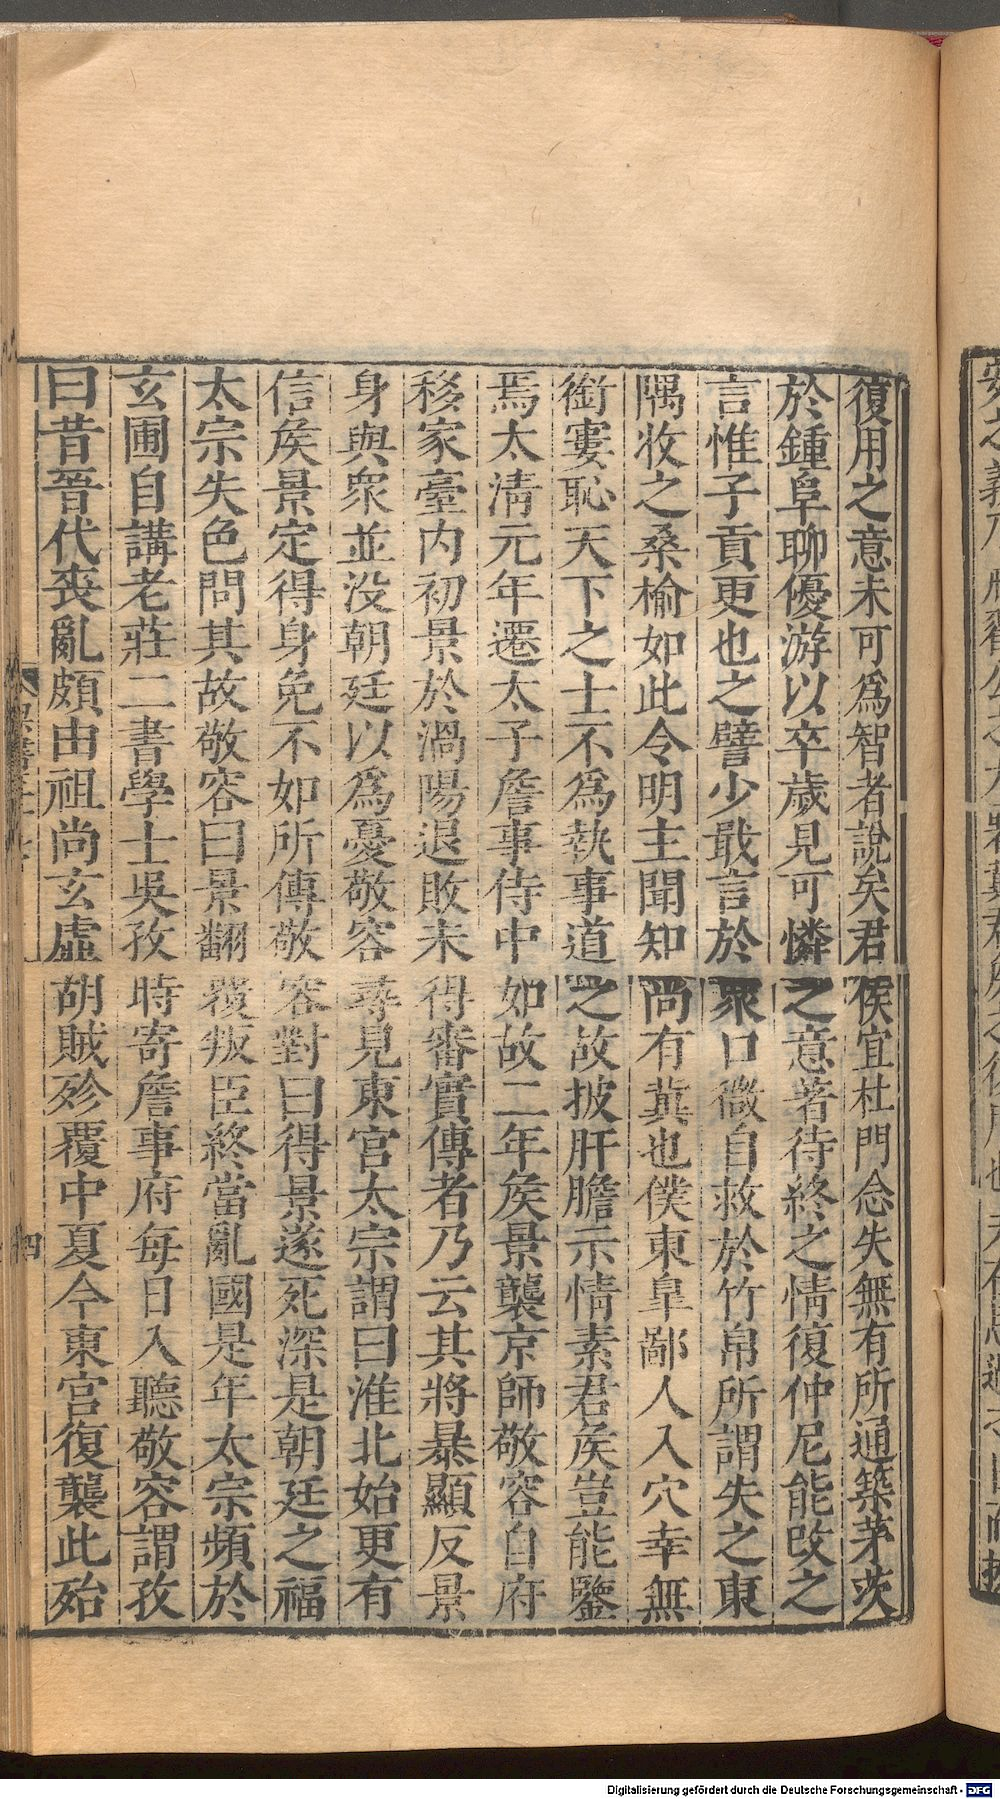 復用之意未可爲智者說矣君侯宜杜門念失無有所通築茅茨
於鍾阜聊優游以卒歲見可憐之意著待終之情復仲尼能改之
言惟子貢更也之譬少戢言於衆口微自救於竹帛所謂失之東
隅收之桑榆如此令明主聞知尚有冀也僕東皐鄙人入穴幸無
銜窶恥天下之士不爲執事道之故披肝膽示情素君侯豈能鑒
焉太清元年遷太子詹事侍中如故二年侯景襲京師敬容自府
移家臺内初景於渦陽退敗未得審實傳者乃云其將暴顯反景
身與衆並没朝廷以爲憂敬容尋見東宮太宗謂曰淮北始更有
信侯景定得身免不如所傳敬容對曰得景遂死深是朝廷之福
太宗失色問其故敬容曰景翻覆叛臣終當亂國是年太宗頻於
玄圃自講老莊二書學士吳孜時寄詹事府每日入聽敬容謂孜
曰昔晉代喪亂頗由祖尚玄虛胡賊殄覆中夏今東宮復襲此殆
四
Digitalisierung gefördert durch die Deutsche Forschungsgemeinschaft - DFG